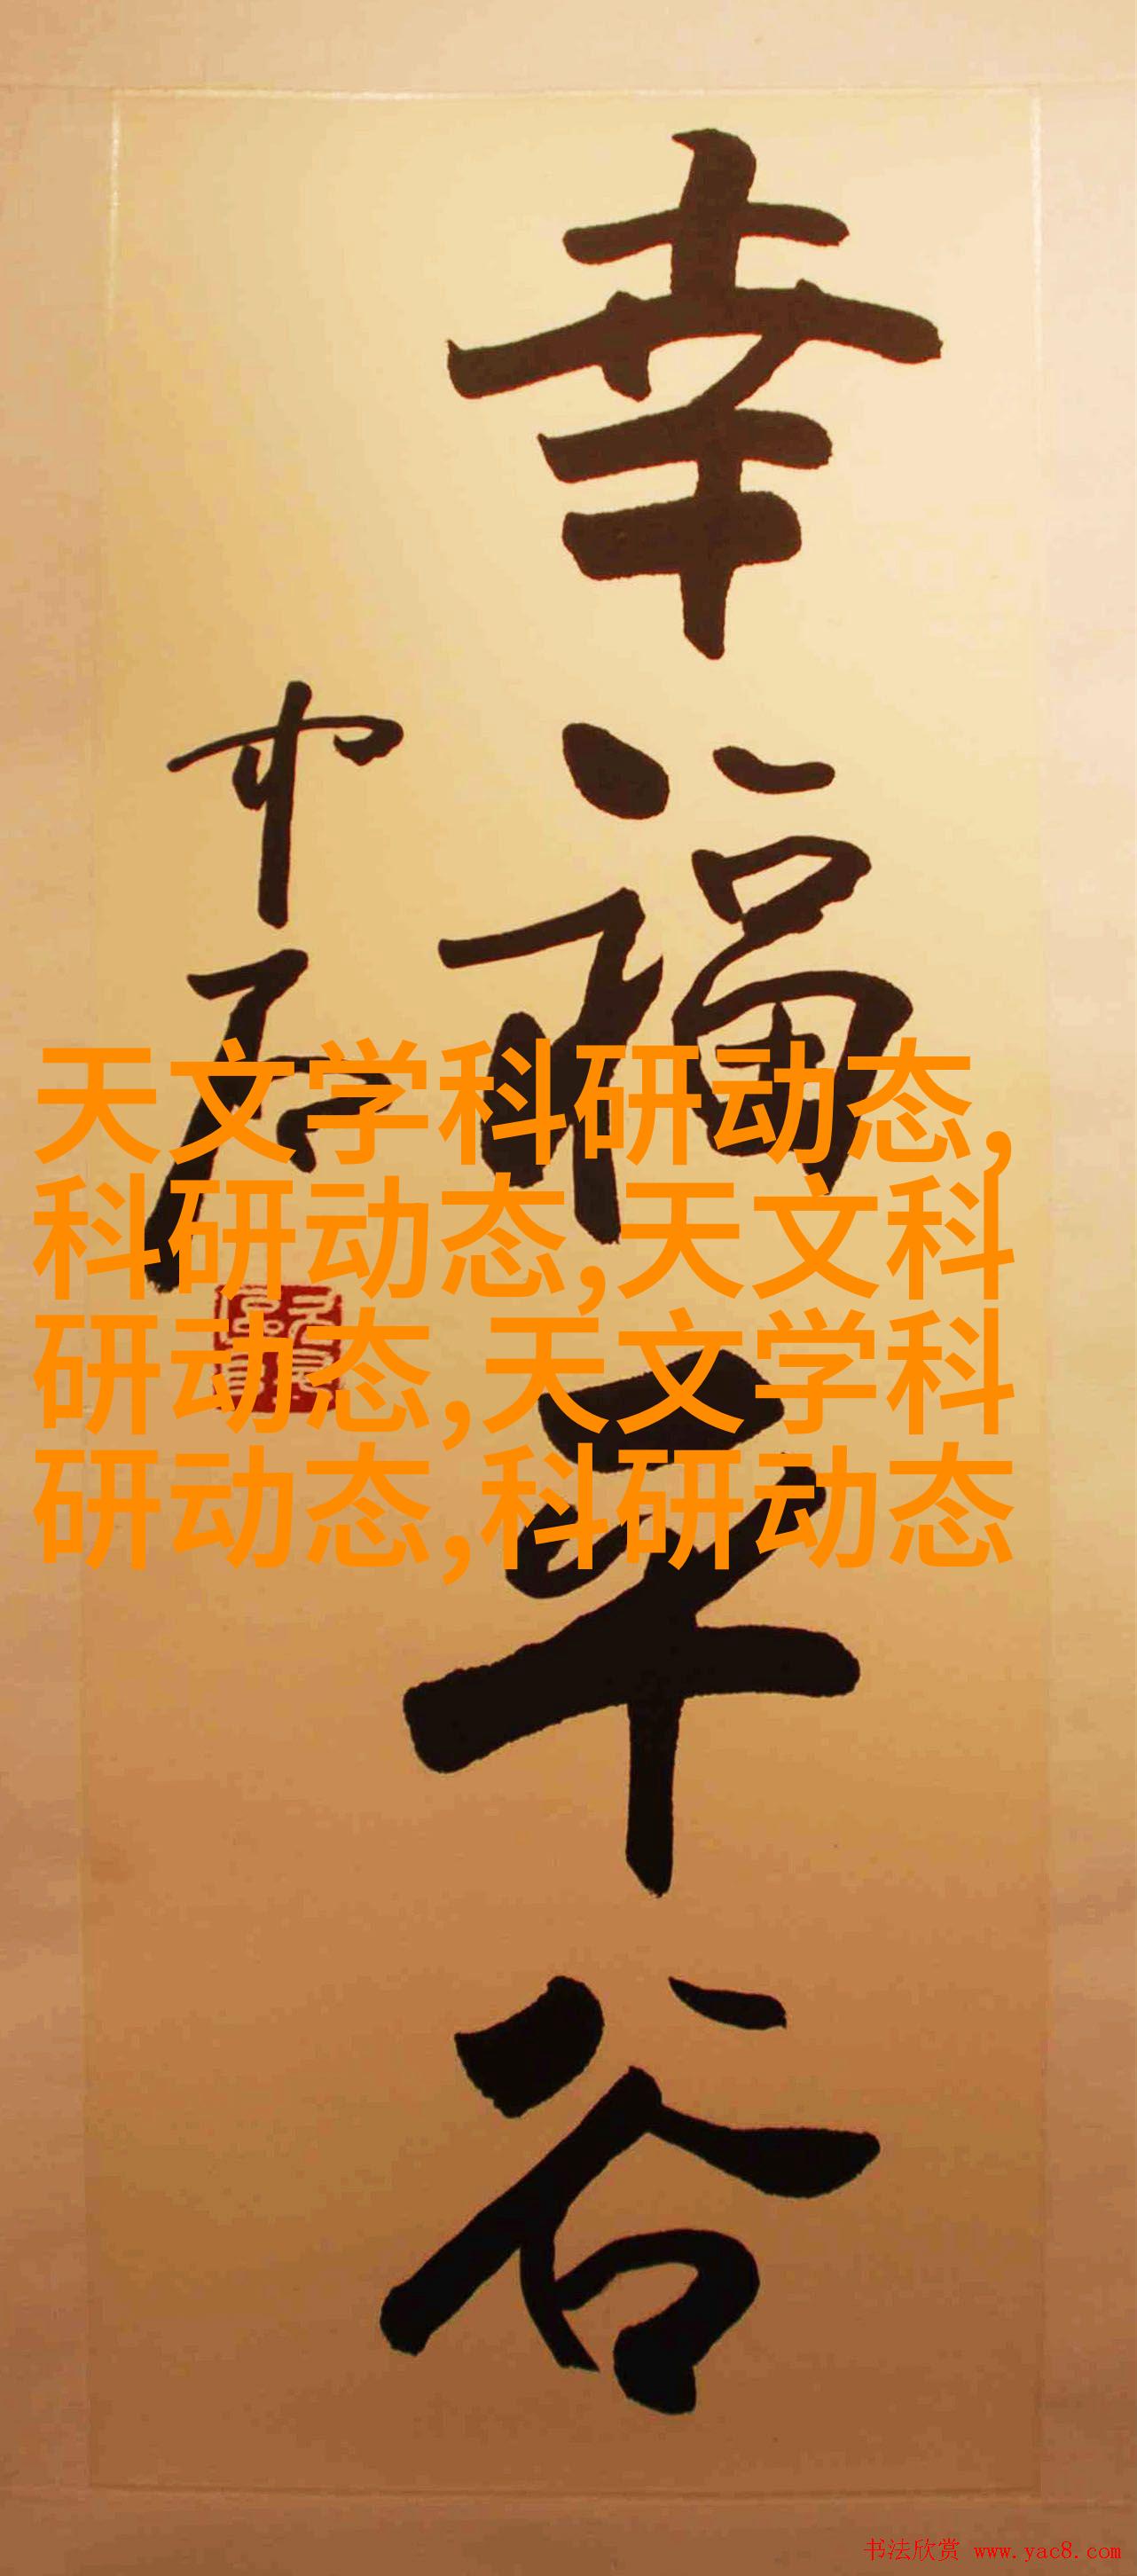 幸福平谷
天文学科研动态,
科研动态,天文科
研动态,天文学科
研动态,科研动态
书法欣赏 www.yac8.com